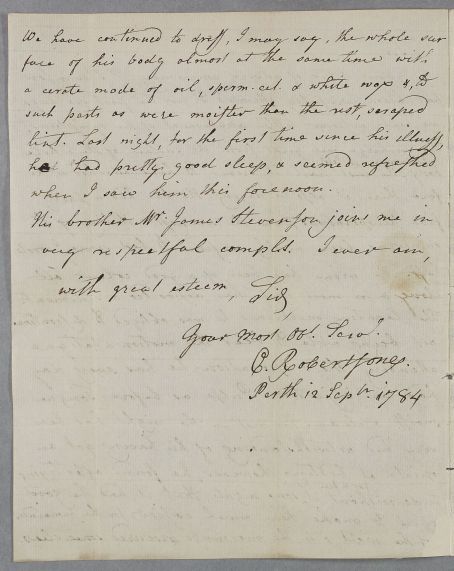 We have continued to dress, I may say, the whole sur
face of his body almost at the same time with
a cerate made of oil, sperm. cet. & white wax &, to
such parts as were moister than the rest, scraped
lint. Last night, for the first time since his illness,
he had pretty good sleep, & seemed refreshed
when I saw him this forenoon.
His brother Mr. James Stevenson joins me in
very respectful complts. I ever am,
with great esteem, Sir,
Your most Obt. Servt.
C. Robertson
Perth 12 Septr. 1784